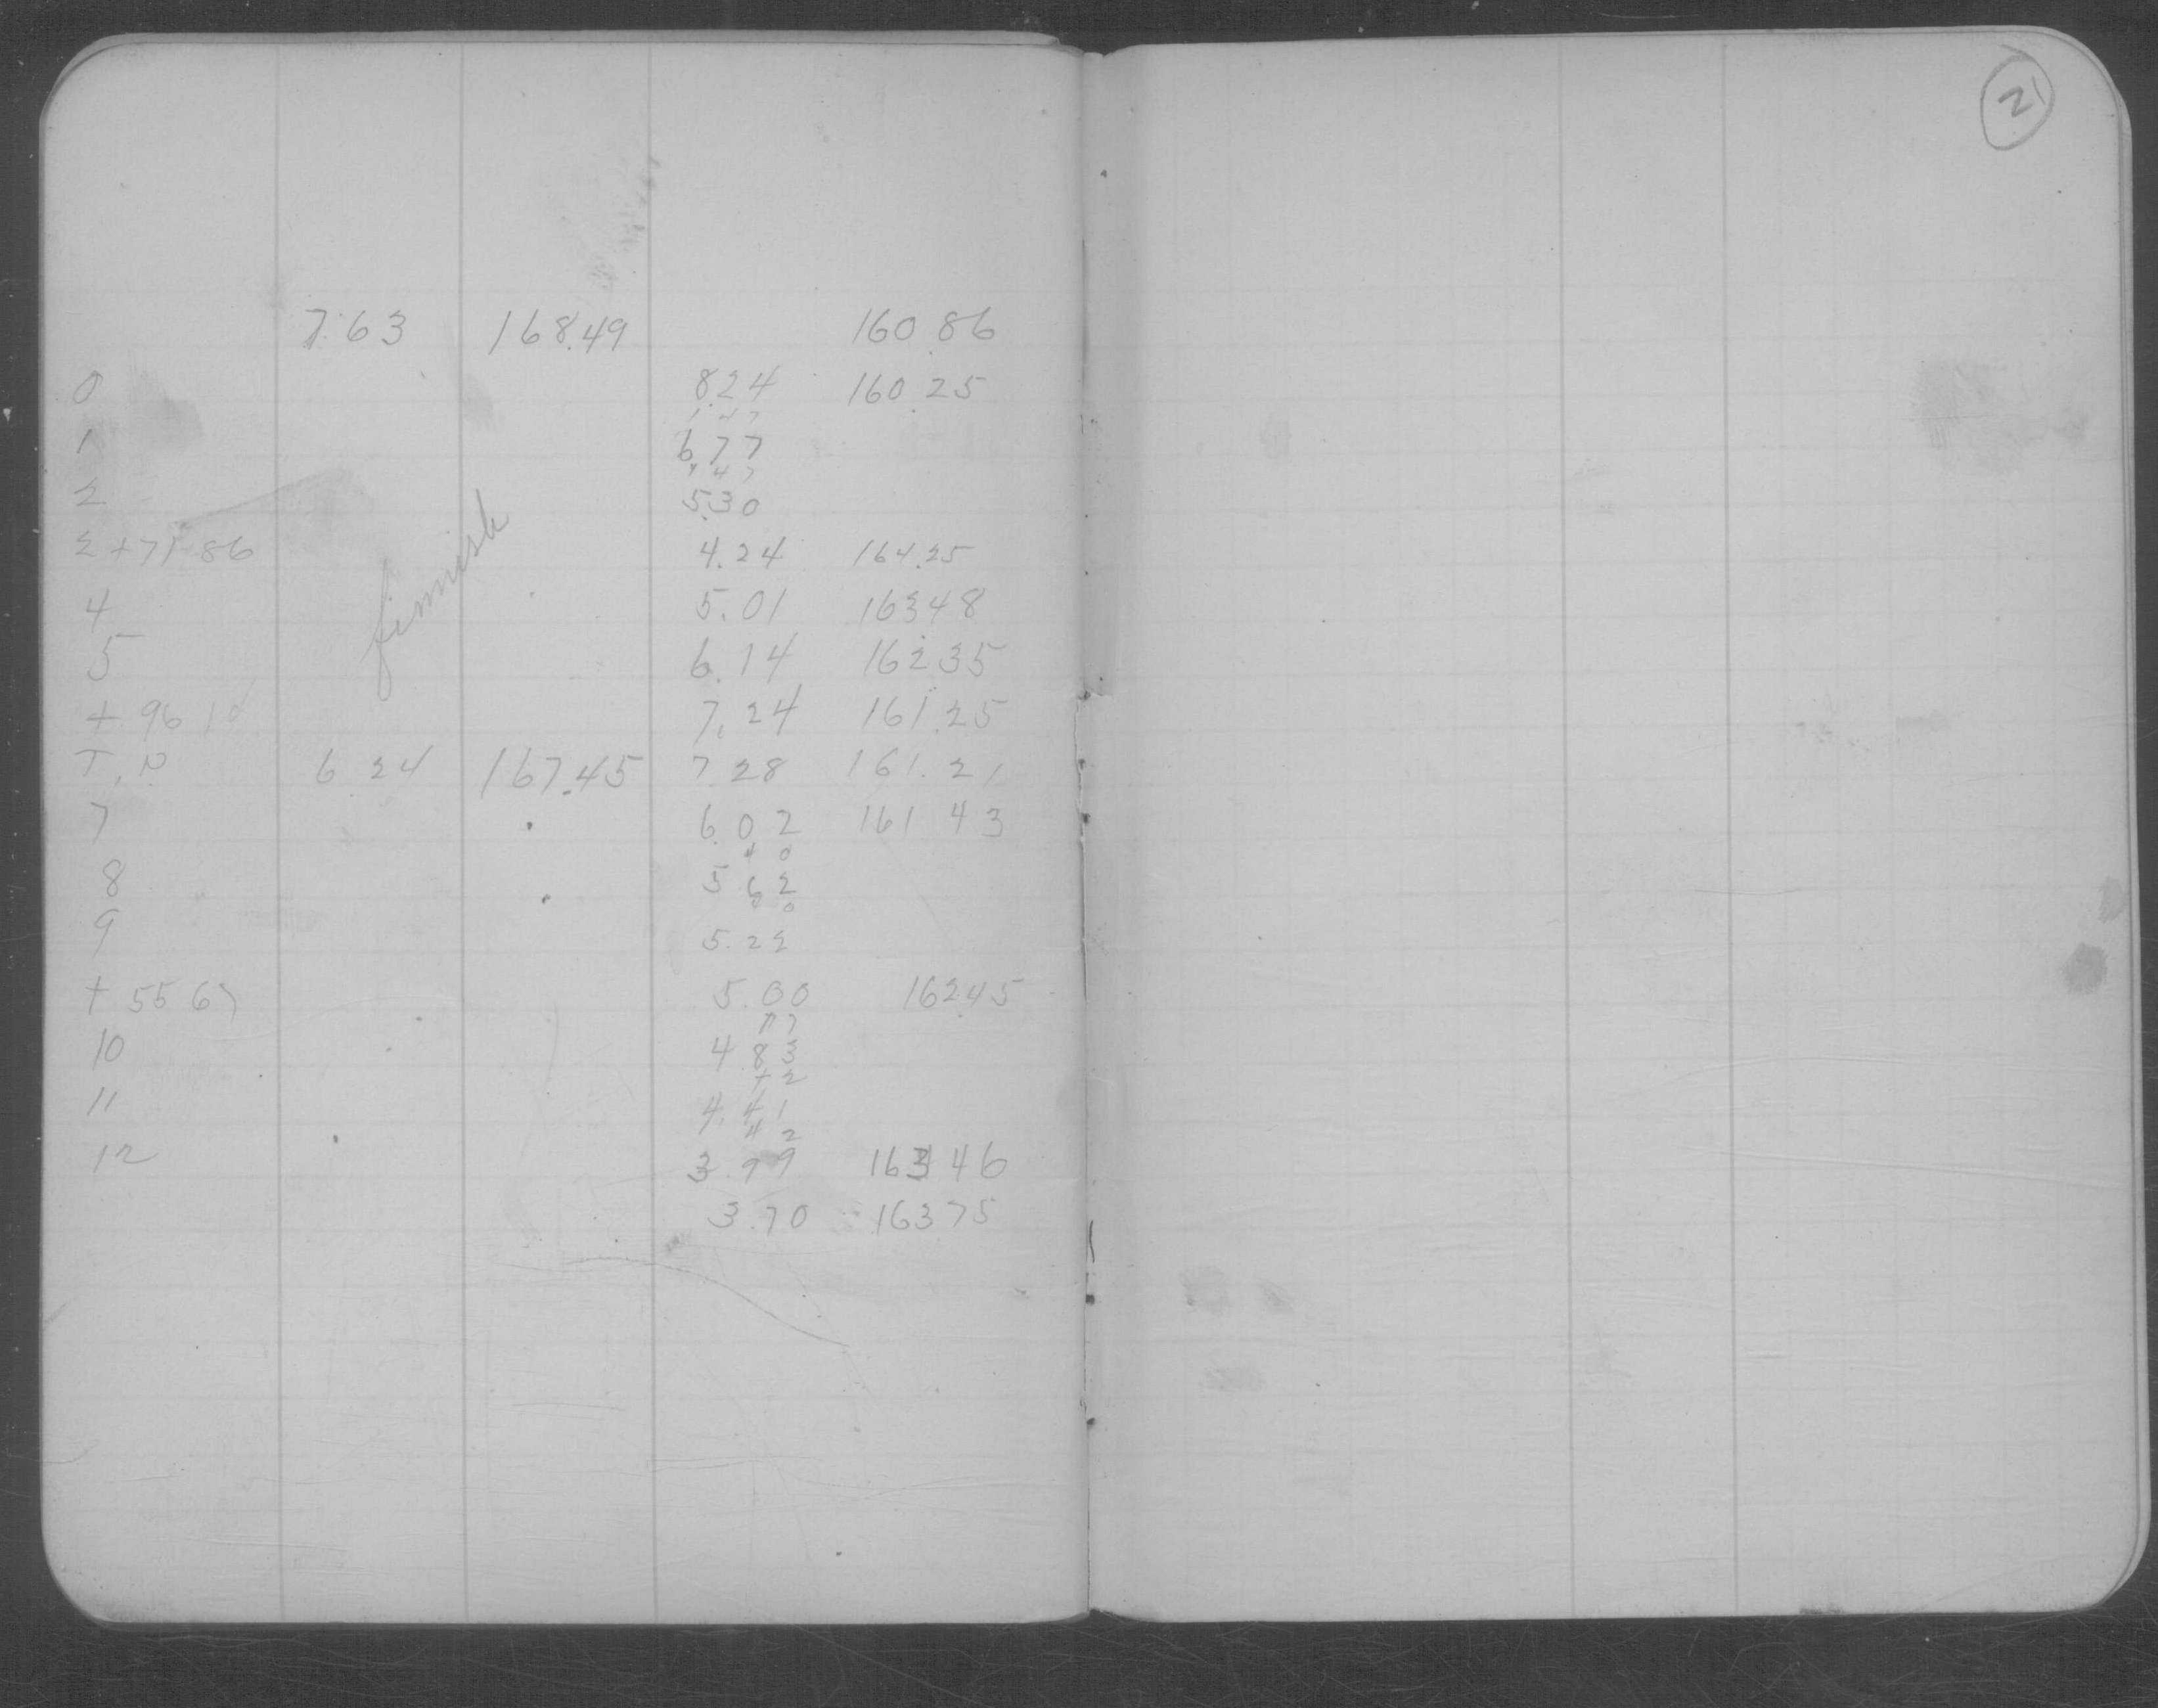 21
7.63 168.49 160.86
0 8.24 160.25
1.47
1 6.77
1.47
2 5.30
2+71.86 4.24 164.25
4 5.01 163.48
5 6.14 162.35
+ 96 7.24 161.25
T.P 6.24 167.45 7.28 161.21
7 6.02 161.43
40
8 5.62
40
9 5.22
+ 55 67 5.00 162.45
17
10 4.83
42
11 4.41
42
12 3.99 163.46
3.70 163.75
finnish